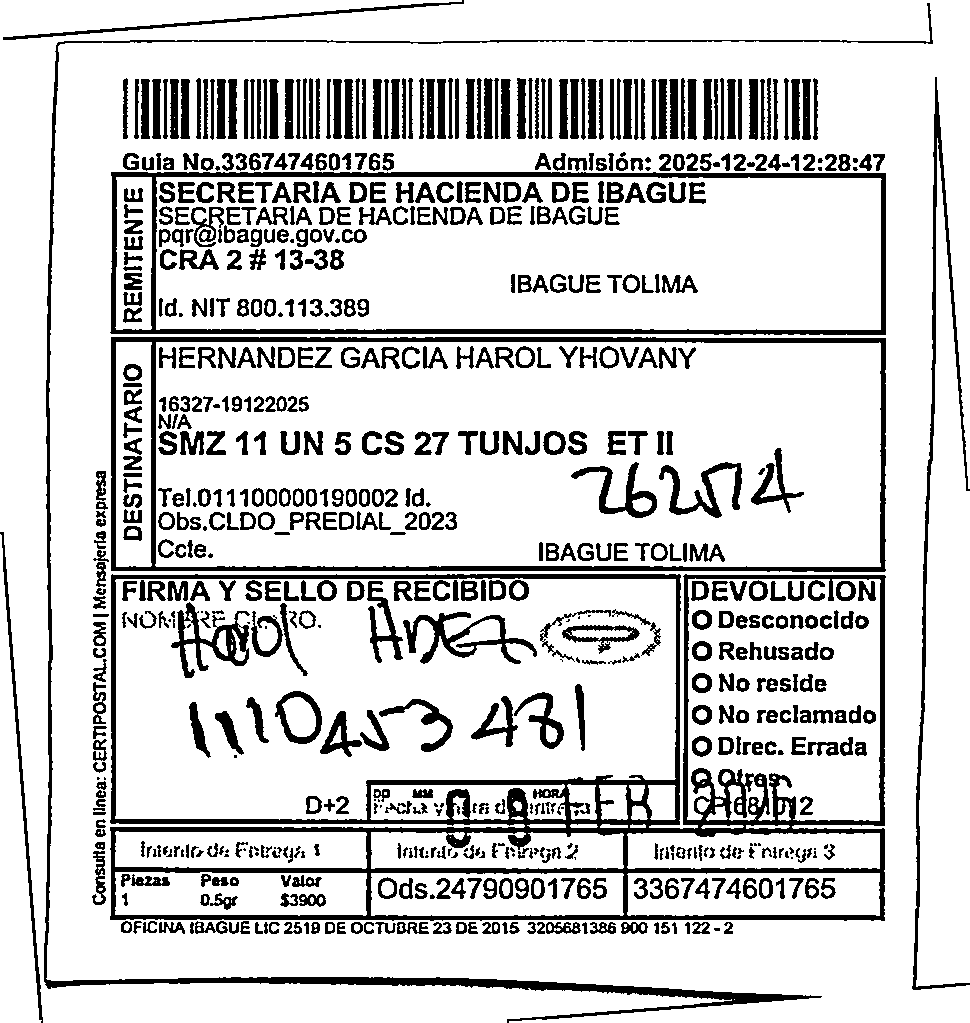 Guia No.3367474601765 Admisión: 2025-12-24-12:28:47
REMITENTE
SECRETARIA DE HACIENDA DE IBAGUE
SECRETARIA DE HACIENDA DE IBAGUE
pqr@ibague.gov.co
CRA 2 # 13-38
IBAGUE TOLIMA
Id. NIT 800.113.389
DESTINATARIO
HERNANDEZ GARCIA HAROL YHOVANY
16327-19122025
N/A
SMZ 11 UN 5 CS 27 TUNJOS ET II
262514
Tel.011100000190002 Id.
Obs.CLDO_PREDIAL_2023
Ccte.
IBAGUE TOLIMA
Consulta en línea: CERTIPOSTAL.COM | Mensajería expresa
FIRMA Y SELLO DE RECIBIDO
NOMBRE CLARO.
Harol HDEZ
1110453481
D+2
DD MM HORA
Fecha y hora de entrega
FEB
DEVOLUCION
Desconocido
Rehusado
No reside
No reclamado
Direc. Errada
Otros
Intento de Entrega 1 Intento de Entrega 2 Intento de Entrega 3
Piezas Peso Valor
1 0.5gr $3900
Ods.24790901765 3367474601765
OFICINA IBAGUE LIC 2519 DE OCTUBRE 23 DE 2015 3205681386 900 151 122 - 2